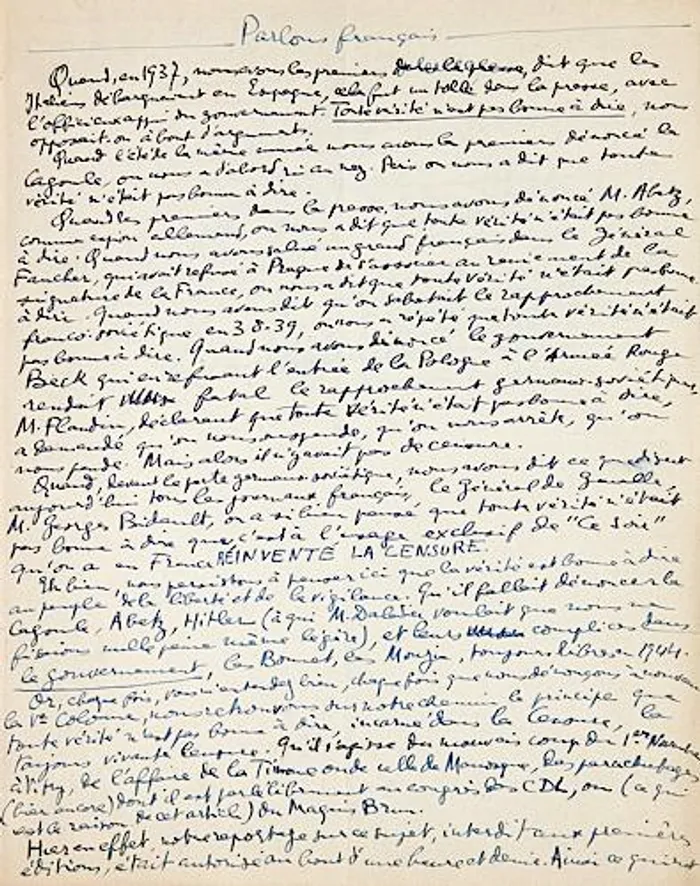 Parlons français
Quand, en 1937, nous avons les premiers dans la presse, dit que les
Italiens débarquaient en Espagne, cela fut un tollé dans la presse, avec
l'officieux appui du gouvernement. Toute vérité n'est pas bonne à dire, nous
opposait-on à bout d'arguments.
Quand l'été de la même année nous avons les premiers dénoncé la
Cagoule, on nous a d'abord ri au nez. Puis on nous a dit que toute
vérité n'était pas bonne à dire.
Quand les premiers dans la presse nous avons dénoncé M. Abetz,
comme espion allemand, on nous a dit que toute vérité n'était pas bonne
à dire. Quand nous avons salué un grand français dans le Général
Faucher, qui avait refusé à Prague de s'associer au reniement de la
signature de la France, on nous a dit que toute vérité n'était pas bonne
à dire. Quand nous avons dit qu'on sabotait le rapprochement
franco-soviétique en 38-39, on nous a répété que toute vérité n'était
pas bonne à dire. Quand nous avons dénoncé le gouvernement
Beck qui en refusant l'entrée de la Pologne à l'Armée Rouge
rendait fatal le rapprochement germano-soviétique,
M. Flandin, déclarant que toute vérité n'était pas bonne à dire,
a demandé qu'on nous suspende, qu'on nous arrête, qu'on
nous pende. Mais alors il n'y avait pas de censure.
Quand, devant le pacte germano-soviétique, nous avons dit ce que disent
aujourd'hui tous les journaux français, le Général de Gaulle,
M. Georges Bidault, on a si bien pensé que toute vérité n'était
pas bonne à dire que c'est à l'usage exclusif de "Ce Soir"
qu'on a en France RÉINVENTÉ LA CENSURE.
Eh bien, nous persistons à penser ici que la vérité est bonne à dire
au peuple de la liberté et de la vigilance. Qu'il fallait dénoncer la
Cagoule, Abetz, Hitler (à qui M. Daladier voulait que nous ne
fissions nulle peine même légère), et leurs complices dans
le gouvernement, les Bonnet, les Mouzin, toujours libres en 1944.
Or, chaque fois, vous m'entendez bien, chaque fois que nous dénonçons à nouveau
la Ve Colonne, nous retrouvons sur notre chemin le principe que
toute vérité n'est pas bonne à dire, incarné dans la Censure, la
toujours vivante Censure. Qu'il s'agisse du mauvais coup du 1er Novembre
à Vitry, de l'affaire de la Timone ou de celle de Maussane, des parachutages
(hier encore) dont il est parlé librement au congrès des CDL, ou (ce qui
est la raison de cet article) du Maquis Brun.
Hier en effet, notre reportage sur ce sujet, interdit aux premières
éditions, était autorisé au bout d'une heure et demie. Ainsi ce qui n'est